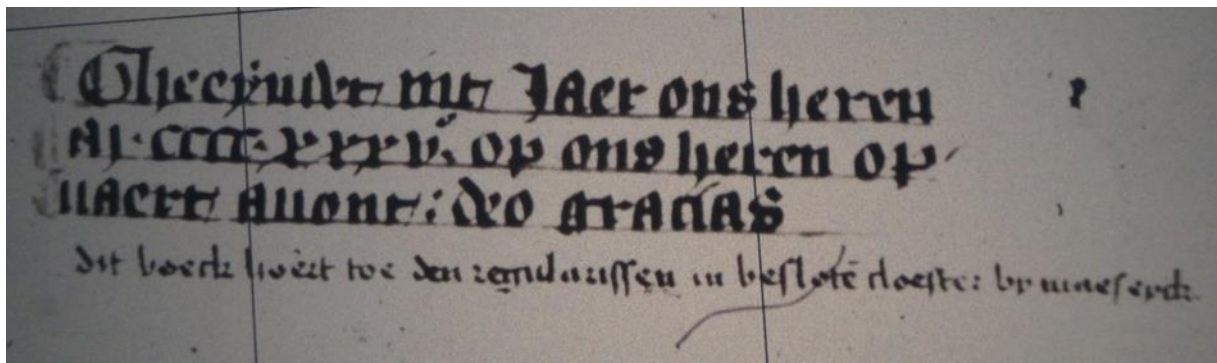 Gheeyndet int Jaer ons heren
M·cccc·xxxv. op ons heren op
uaert auont: deo gracias
dit boeck hoert toe den regularissen in beslotē cloester by maeseyck